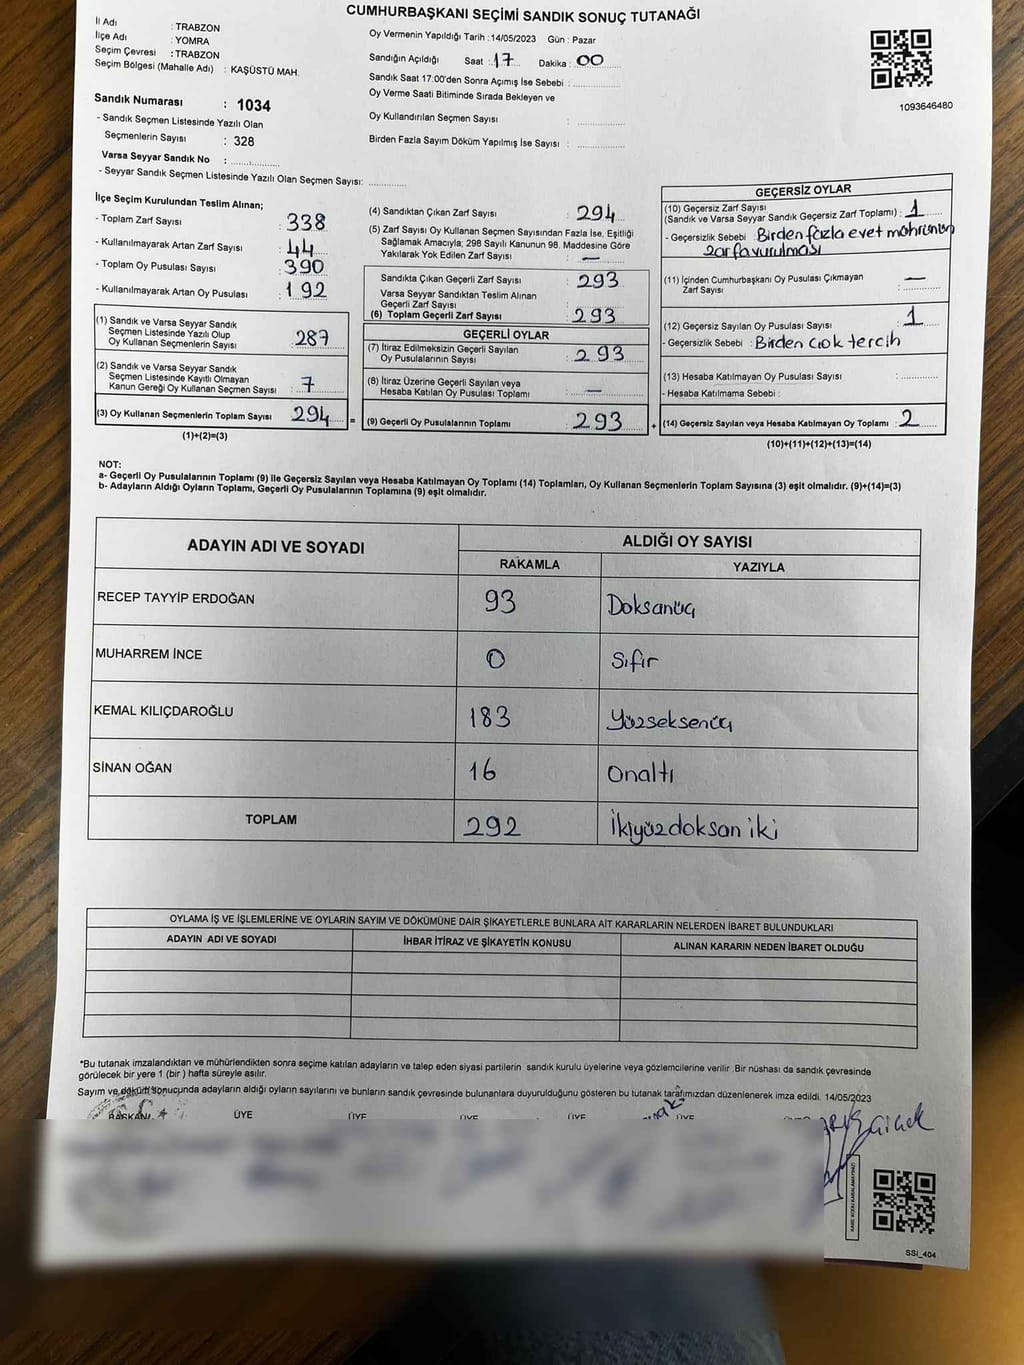 CUMHURBAŞKANI SEÇİMİ SANDIK SONUÇ TUTANAĞI
İl Adı : TRABZON
İlçe Adı : YOMRA
Seçim Çevresi : TRABZON
Seçim Bölgesi (Mahalle Adı) : KAŞÜSTÜ MAH.
Oy Vermenin Yapıldığı Tarih :14/05/2023 Gün : Pazar
Sandığın Açıldığı Saat :17 Dakika : 00
Sandık Saat 17:00'den Sonra Açımış İse Sebebi :
Oy Verme Saati Bitiminde Sırada Bekleyen ve
Oy Kullandırılan Seçmen Sayısı :
Birden Fazla Sayım Döküm Yapılmış İse Sayısı :
1093646480
Sandık Numarası : 1034
- Sandık Seçmen Listesinde Yazılı Olan
Seçmenlerin Sayısı : 328
Varsa Seyyar Sandık No :
- Seyyar Sandık Seçmen Listesinde Yazılı Olan Seçmen Sayısı:
İlçe Seçim Kurulundan Teslim Alınan;
- Toplam Zarf Sayısı : 338
- Kullanılmayarak Artan Zarf Sayısı : 44
- Toplam Oy Pusulası Sayısı : 390
- Kullanılmayarak Artan Oy Pusulası : 192
(1) Sandık ve Varsa Seyyar Sandık
Seçmen Listesinde Yazılı Olup
Oy Kullanan Seçmenlerin Sayısı : 287
(2) Sandık ve Varsa Seyyar Sandık
Seçmen Listesinde Kayıtlı Olmayan
Kanun Gereği Oy Kullanan Seçmen Sayısı : 7
(3) Oy Kullanan Seçmenlerin Toplam Sayısı : 294 =
(1)+(2)=(3)
(4) Sandıktan Çıkan Zarf Sayısı : 294
(5) Zarf Sayısı Oy Kullanan Seçmen Sayısından Fazla İse, Eşitliği
Sağlamak Amacıyla; 298 Sayılı Kanunun 98. Maddesine Göre
Yakılarak Yok Edilen Zarf Sayısı : —
Sandıkta Çıkan Geçerli Zarf Sayısı : 293
Varsa Seyyar Sandıktan Teslim Alınan
Geçerli Zarf Sayısı
(6) Toplam Geçerli Zarf Sayısı : 293
GEÇERLİ OYLAR
(7) İtiraz Edilmeksizin Geçerli Sayılan
Oy Pusulalarının Sayısı : 293
(8) İtiraz Üzerine Geçerli Sayılan veya
Hesaba Katılan Oy Pusulası Toplamı : —
(9) Geçerli Oy Pusulalarının Toplamı : 293 +
GEÇERSİZ OYLAR
(10) Geçersiz Zarf Sayısı
(Sandık ve Varsa Seyyar Sandık Geçersiz Zarf Toplamı) : 1
- Geçersizlik Sebebi : Birden fazla evet mührünün
zarfa vurulması
(11) İçinden Cumhurbaşkanı Oy Pusulası Çıkmayan
Zarf Sayısı : —
(12) Geçersiz Sayılan Oy Pusulası Sayısı : 1
- Geçersizlik Sebebi : Birden çok tercih
(13) Hesaba Katılmayan Oy Pusulası Sayısı :
- Hesaba Katılmama Sebebi :
(14) Geçersiz Sayılan veya Hesaba Katılmayan Oy Toplamı : 2
(10)+(11)+(12)+(13)=(14)
NOT:
a- Geçerli Oy Pusulalarının Toplamı (9) ile Geçersiz Sayılan veya Hesaba Katılmayan Oy Toplamı (14) Toplamları, Oy Kullanan Seçmenlerin Toplam Sayısına (3) eşit olmalıdır. (9)+(14)=(3)
b- Adayların Aldığı Oyların Toplamı, Geçerli Oy Pusulalarının Toplamına (9) eşit olmalıdır.
ADAYIN ADI VE SOYADI ALDIĞI OY SAYISI
RAKAMLA YAZIYLA
RECEP TAYYİP ERDOĞAN 93 Doksanüç
MUHARREM İNCE 0 Sıfır
KEMAL KILIÇDAROĞLU 183 Yüzseksenüç
SİNAN OĞAN 16 Onaltı
TOPLAM 292 İkiyüzdoksan iki
OYLAMA İŞ VE İŞLEMLERİNE VE OYLARIN SAYIM VE DÖKÜMÜNE DAİR ŞİKAYETLERLE BUNLARA AİT KARARLARIN NELERDEN İBARET BULUNDUKLARI
ADAYIN ADI VE SOYADI İHBAR İTİRAZ VE ŞİKAYETİN KONUSU ALINAN KARARIN NEDEN İBARET OLDUĞU
*Bu tutanak imzalandıktan ve mühürlendikten sonra seçime katılan adayların ve talep eden siyasi partilerin sandık kurulu üyelerine veya gözlemcilerine verilir .Bir nüshası da sandık çevresinde
görülecek bir yere 1 (bir ) hafta süreyle asılır.
Sayım ve döküm sonucunda adayların aldığı oyların sayılarını ve bunların sandık çevresinde bulunanlara duyurulduğunu gösteren bu tutanak tarafımızdan düzenlenerek imza edildi. 14/05/2023
BAŞKAN ÜYE ÜYE ÜYE ÜYE ÜYE
SSİ_404